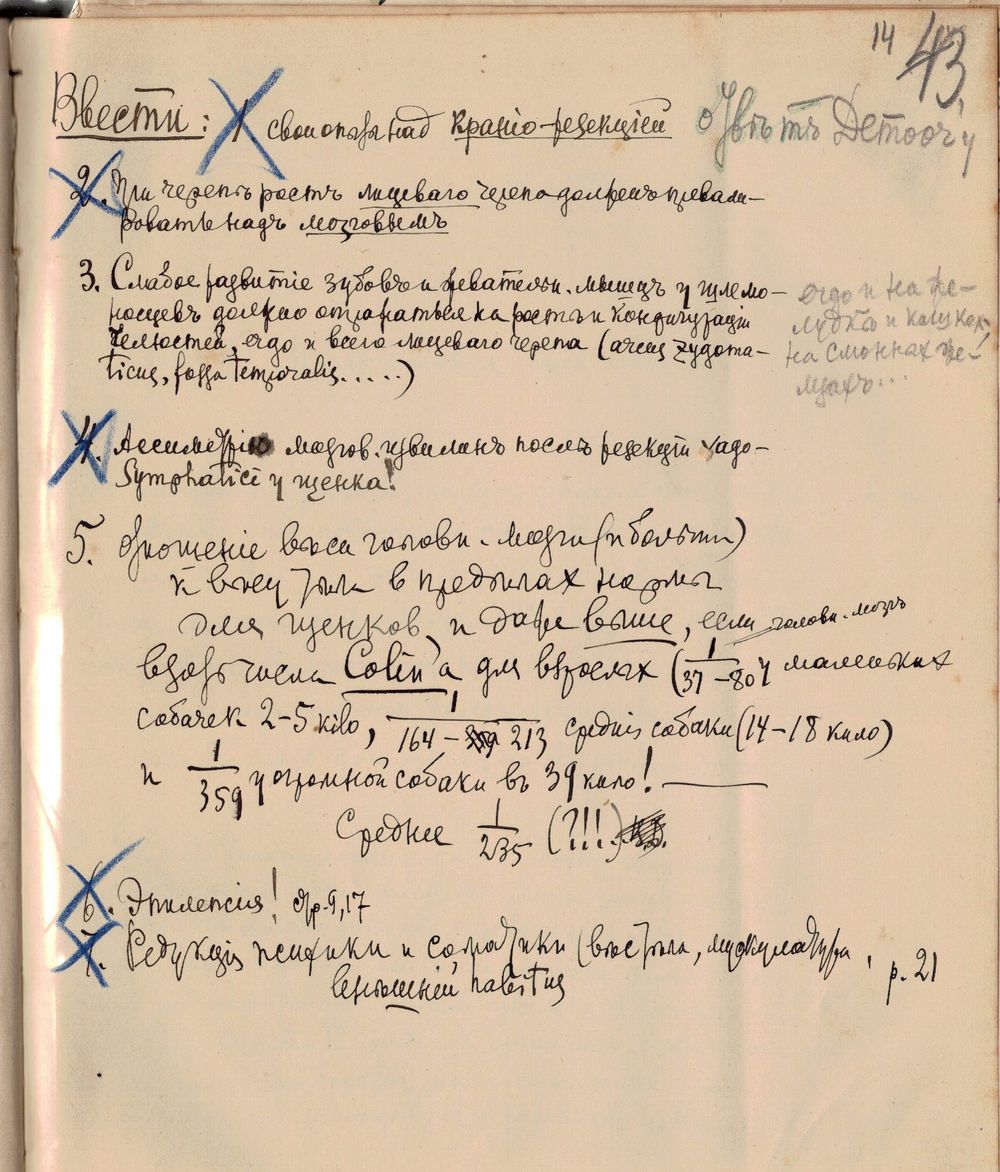 14 43
Ввести: 1 свои опыты над кранiо-резекцiей Отвѣтъ Детоочу
2. При черепѣ ростъ лицеваго черепа долженъ превали-
ровать надъ мозговымъ
3. Слабое развитiе зубовъ и жевательн. мышцъ у шлемо-
носцевъ должно отражаться на ростъ и конфигурацiи
челюстей, ergo и всего лицеваго черепа (arcus zygoma-
ticus, fossa temporalis.....)
ergo и на же-
лудкѣ и кишках,
на слюнных же-!
лезахъ...
4. Ассиметрiю мозгов. извилинъ послѣ резекцiи
Symphatici у щенка!
5. Отношенiе вѣса головн. мозга
к вѣсу тѣла в предѣлах нормы
для щенков, и даже выше, если головн. мозгъ
взять числа Colin'a для взрослых (1/37–80 у маленьких
собачек 2–5 kilo, 1/164–213 среднiя собаки (14–18 кило)
и 1/359 у огромной собаки въ 39 кило!
Среднее 1/235 (?!!!)
6. Эпилепсия! стр. 9, 17
7. Редукцiя психики и соматики (вѣс тѣла, мускулатура,
внѣшнiй habitus p. 21